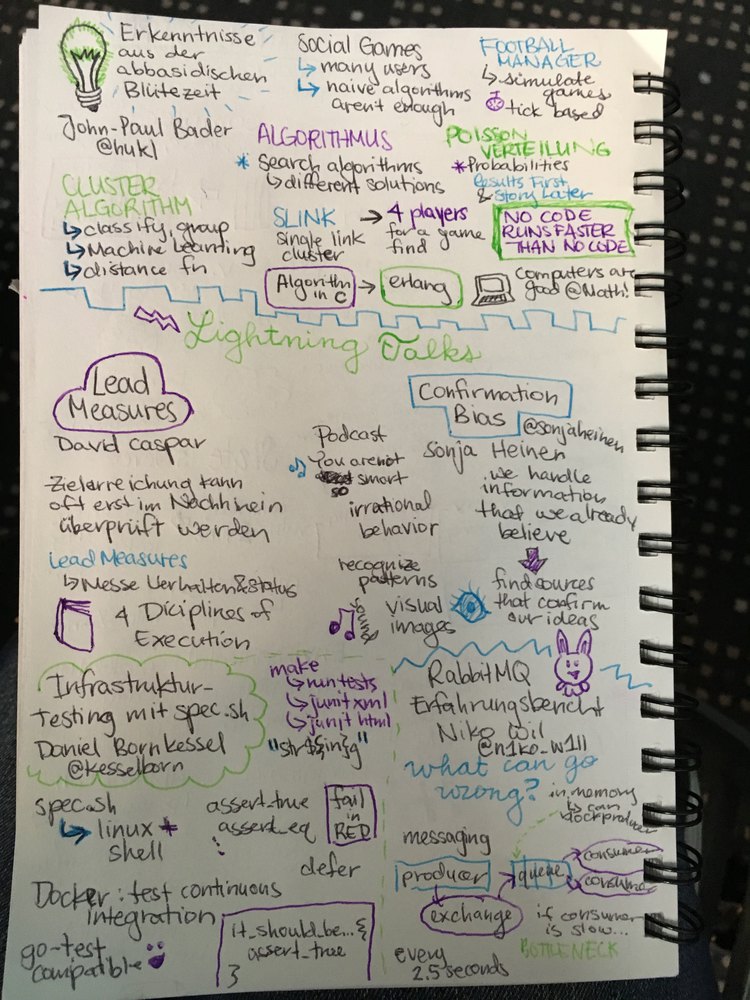 Erkenntnisse
aus der
abbasidischen
Blütezeit
John-Paul Bader
@hukl
Social Games
↳ many users
↳ naive algorithms
aren't enough
FOOTBALL
MANAGER
↳ simulate
games
tick based
ALGORITHMUS
* Search algorithms
↳ different solutions
POISSON
VERTEILUNG
* Probabilities
Results First
& Story Later
CLUSTER
ALGORITHM
↳ classify, group
↳ Machine Learning
↳ distance fn
SLINK
single link
cluster
→ 4 players
for a game
find
NO CODE
RUNS FASTER
THAN NO CODE
Algorithm
in C
→ erlang
computers are
good @Math!
Lightning Talks
Lead
Measures
David Caspar
Zielerreichung kann
oft erst im Nachhinein
überprüft werden
Lead Measures
↳ Messe Verhalten & Status
4 Diciplines of
Execution
Podcast
You are not
so smart
irrational
behavior
recognize
patterns
visual
images
Confirmation
Bias
@sonjaheinen
Sonja Heinen
we handle
information
that we already
believe
find sources
that confirm
our ideas
Infrastruktur-
testing mit spec.sh
Daniel Bornkessel
@kesselborn
make
↳ run tests
↳ junit xml
↳ junit html
"str${in}g"
spec.sh
↳ linux *
shell
assert_true
assert_eq
⋮
fail
in
RED
defer
Docker : test continuous
integration
go-test
compatible
it_should_be...{
assert_true
}
RabbitMQ
Erfahrungsbericht
Niko Wil
@n1ko_w1ll
what can go
wrong?
in memory
↳ can
block producer
messaging
producer
exchange
queue
consumer
consumer
if consumer
is slow...
BOTTLENECK
every
2.5 seconds